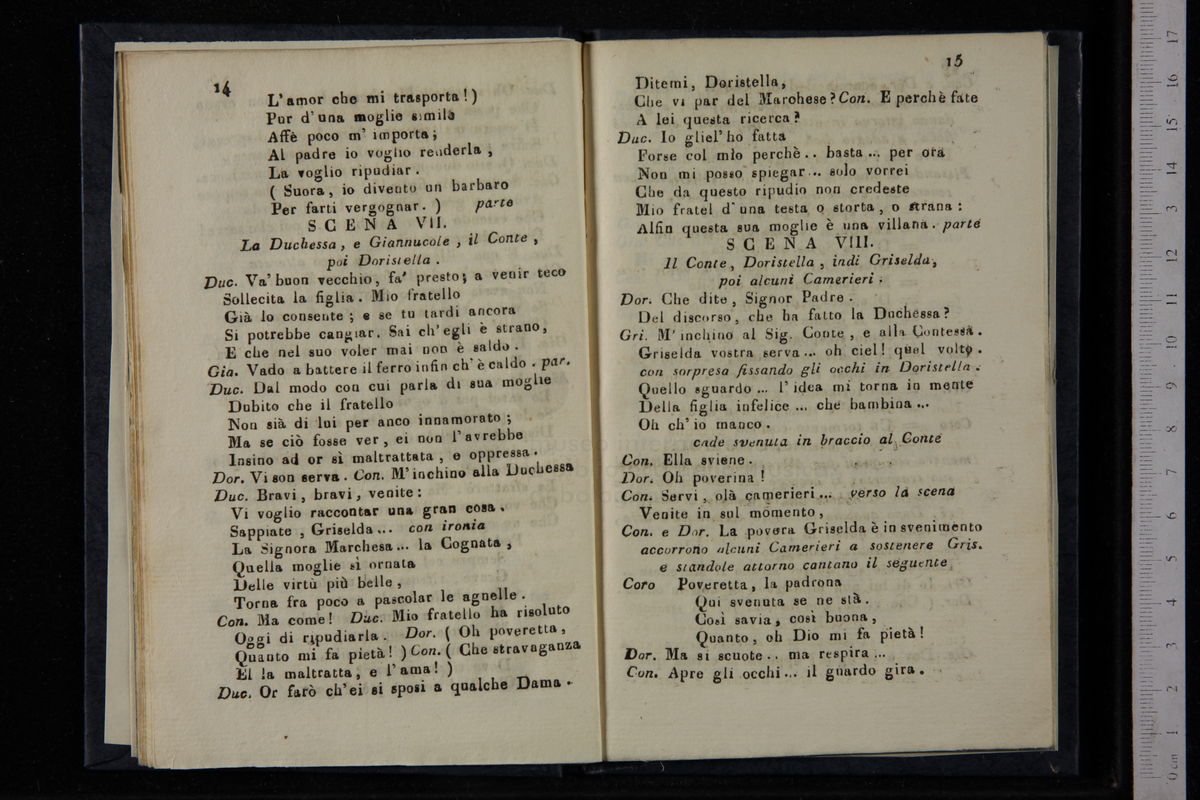 14
L'amor che mi trasporta!)
Pur d'una moglie simile
Affè poco m' importa;
Al padre io voglio renderla,
La voglio ripudiar.
( Suora, io divento un barbaro
Per farti vergognar. ) parte
SCENA VII.
La Duchessa, e Giannucole, il Conte,
poi Doristella.
Duc. Va' buon vecchio, fa' presto; a venir teco
Sollecita la figlia. Mio fratello
Già lo consente; e se tu tardi ancora
Si potrebbe cangiar. Sai ch'egli è strano,
E che nel suo voler mai non è saldo.
Gia. Vado a battere il ferro infin ch' è caldo. par.
Duc. Dal modo con cui parla di sua moglie
Dubito che il fratello
Non sià di lui per anco innamorato;
Ma se ciò fosse ver, ei non l'avrebbe
Insino ad or sì maltrattata, e oppressa.
Dor. Vi son serva. Con. M'inchino alla Duchessa
Duc. Bravi, bravi, venite:
Vi voglio raccontar una gran cosa.
Sappiate, Griselda... con ironia
La Signora Marchesa... la Cognata,
Quella moglie sì ornata
Delle virtù più belle,
Torna fra poco a pascolar le agnelle.
Con. Ma come! Duc. Mio fratello ha risoluto
Oggi di ripudiarla. Dor. ( Oh poveretta,
Quanto mi fa pietà! ) Con. ( Che stravaganza
Ei la maltratta, e l'ama! )
Duc. Or farò ch'ei si sposi a qualche Dama.
15
Ditemi, Doristella,
Che vi par del Marchese? Con. E perchè fate
A lei questa ricerca?
Duc. Io gliel' ho fatta
Forse col mio perchè.. basta... per ora
Non mi posso spiegar... solo vorrei
Che da questo ripudio non credeste
Mio fratel d'una testa o storta, o strana:
Alfin questa sua moglie è una villana. parte
SCENA VIII.
Il Conte, Doristella, indi Griselda,
poi alcuni Camerieri.
Dor. Che dite, Signor Padre.
Del discorso, che ha fatto la Duchessa?
Gri. M' inchino al Sig. Conte, e alla Contessa.
Griselda vostra serva... oh ciel! quel volto.
con sorpresa fissando gli occhi in Doristella.
Quello sguardo... l' idea mi torna in mente
Della figlia infelice... che bambina...
Oh ch' io manco.
cade svenuta in braccio al Conte
Con. Ella sviene.
Dor. Oh poverina!
Con. Servi, olà camerieri... verso la scena
Venite in sul momento,
Con. e Dor. La povera Griselda è in svenimento
accorrono alcuni Camerieri a sostenere Gris.
e standole attorno cantano il seguente
Coro Poveretta, la padrona
Qui svenuta se ne stà.
Così savia, così buona,
Quanto, oh Dio mi fa pietà!
Dor. Ma si scuote.. ma respira...
Con. Apre gli occhi... il guardo gira.
0 cm 1 2 3 4 5 6 7 8 9 10 11 12 13 14 15 16 17